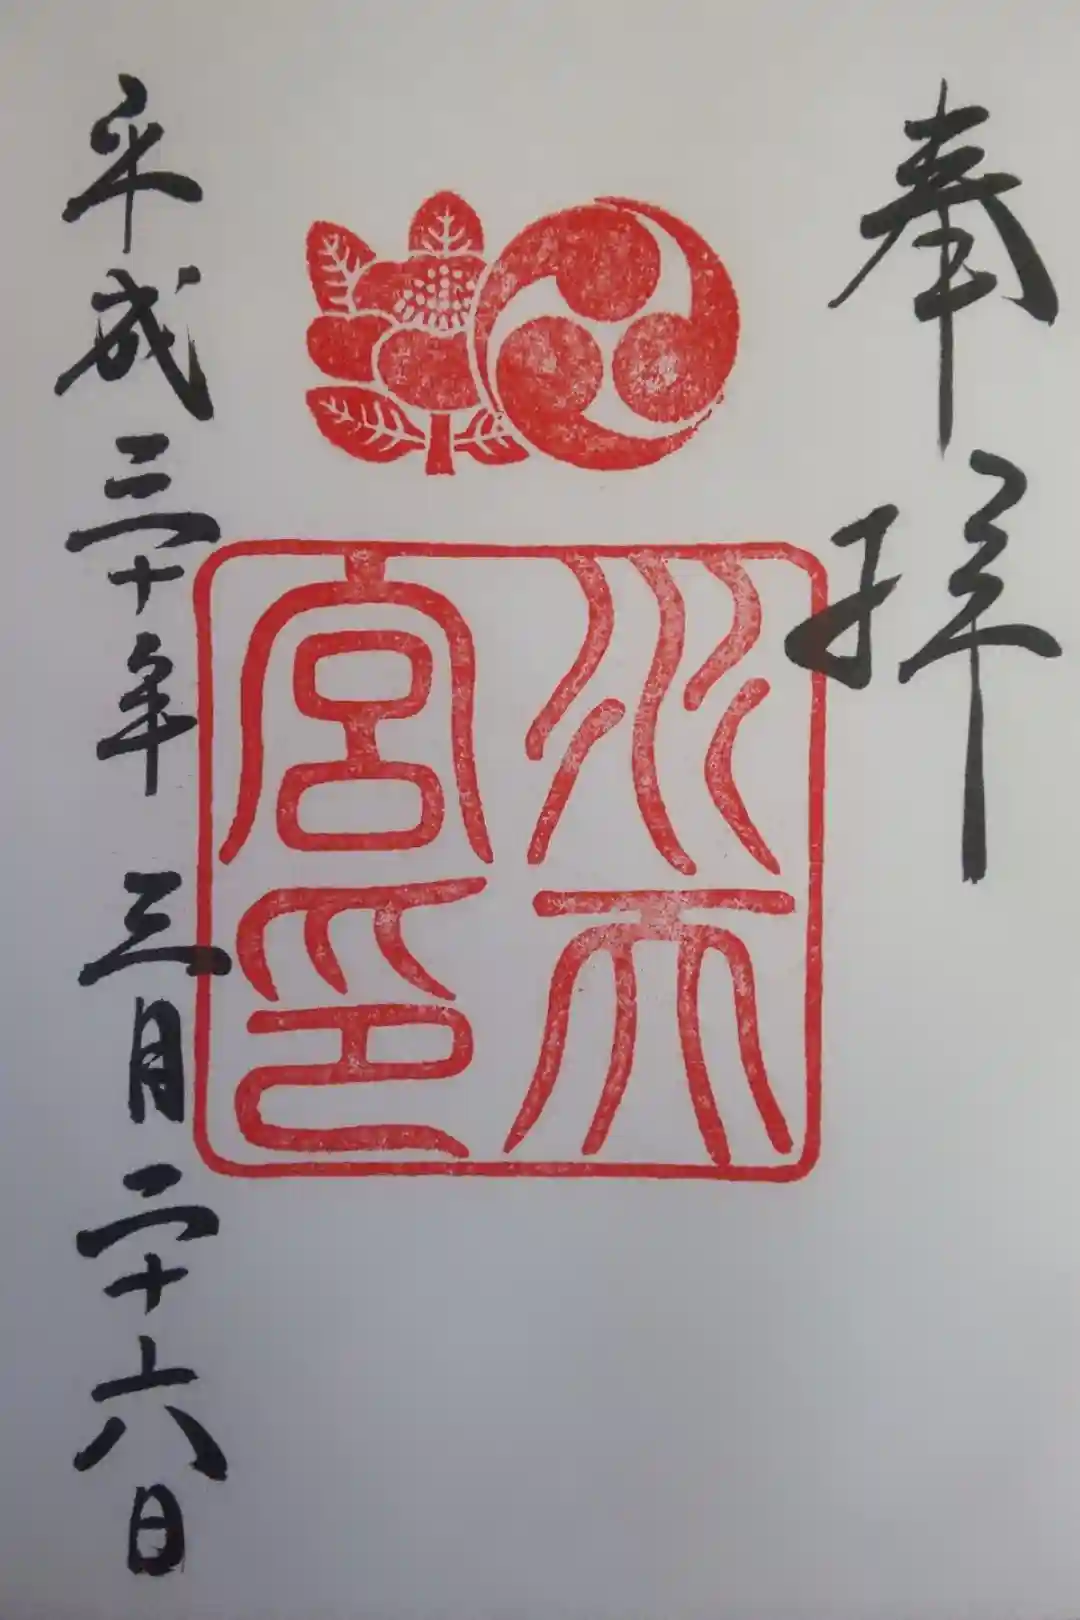 奉拝
水天
宮印
平成三十年 三月二十六日